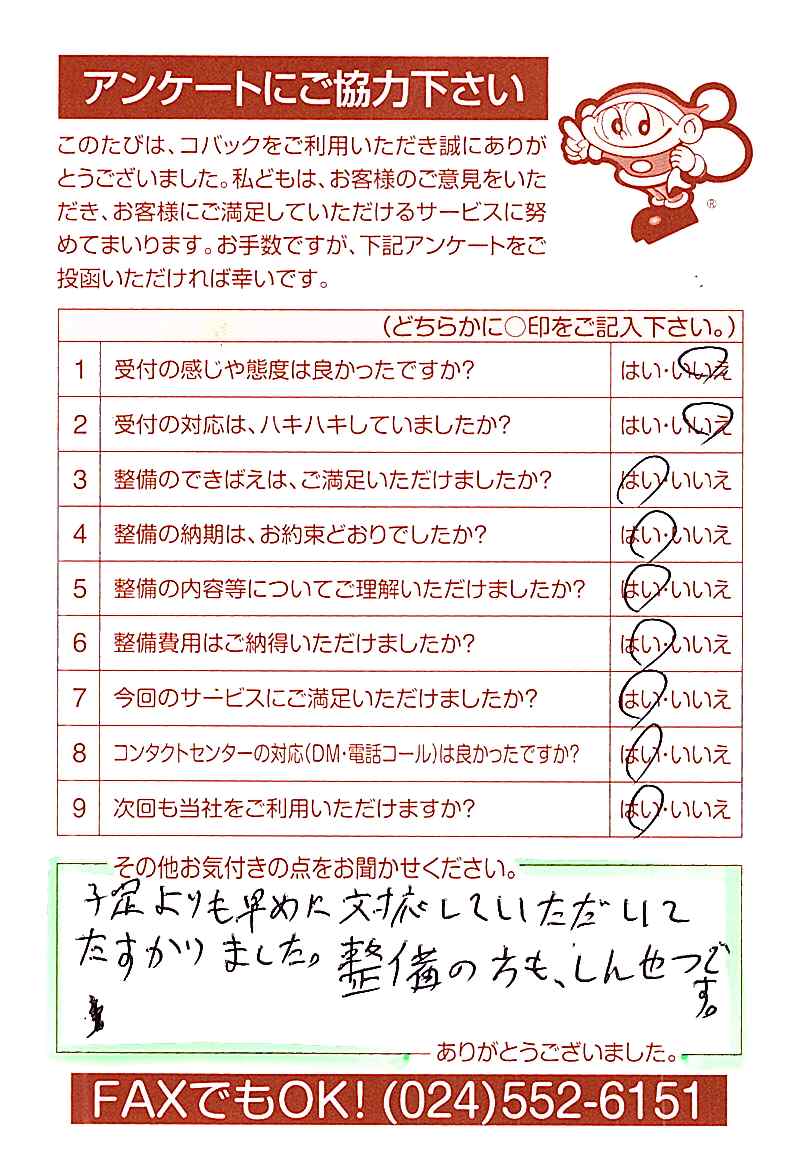 アンケートにご協力下さい
このたびは、コバックをご利用いただき誠にありが
とうございました。私どもは、お客様のご意見をいた
だき、お客様にご満足していただけるサービスに努
めてまいります。お手数ですが、下記アンケートをご
投函いただければ幸いです。
®
(どちらかに○印をご記入下さい。)
1 受付の感じや態度は良かったですか? はい・いいえ
2 受付の対応は、ハキハキしていましたか? はい・いいえ
3 整備のできばえは、ご満足いただけましたか? はい・いいえ
4 整備の納期は、お約束どおりでしたか? はい・いいえ
5 整備の内容等についてご理解いただけましたか? はい・いいえ
6 整備費用はご納得いただけましたか? はい・いいえ
7 今回のサービスにご満足いただけましたか? はい・いいえ
8 コンタクトセンターの対応(DM・電話コール)は良かったですか? はい・いいえ
9 次回も当社をご利用いただけますか? はい・いいえ
その他お気付きの点をお聞かせください。
予定よりも早めに対応していただいて
たすかりました。整備の方も、しんせつで
す。
ありがとうございました。
FAXでもOK! (024)552-6151